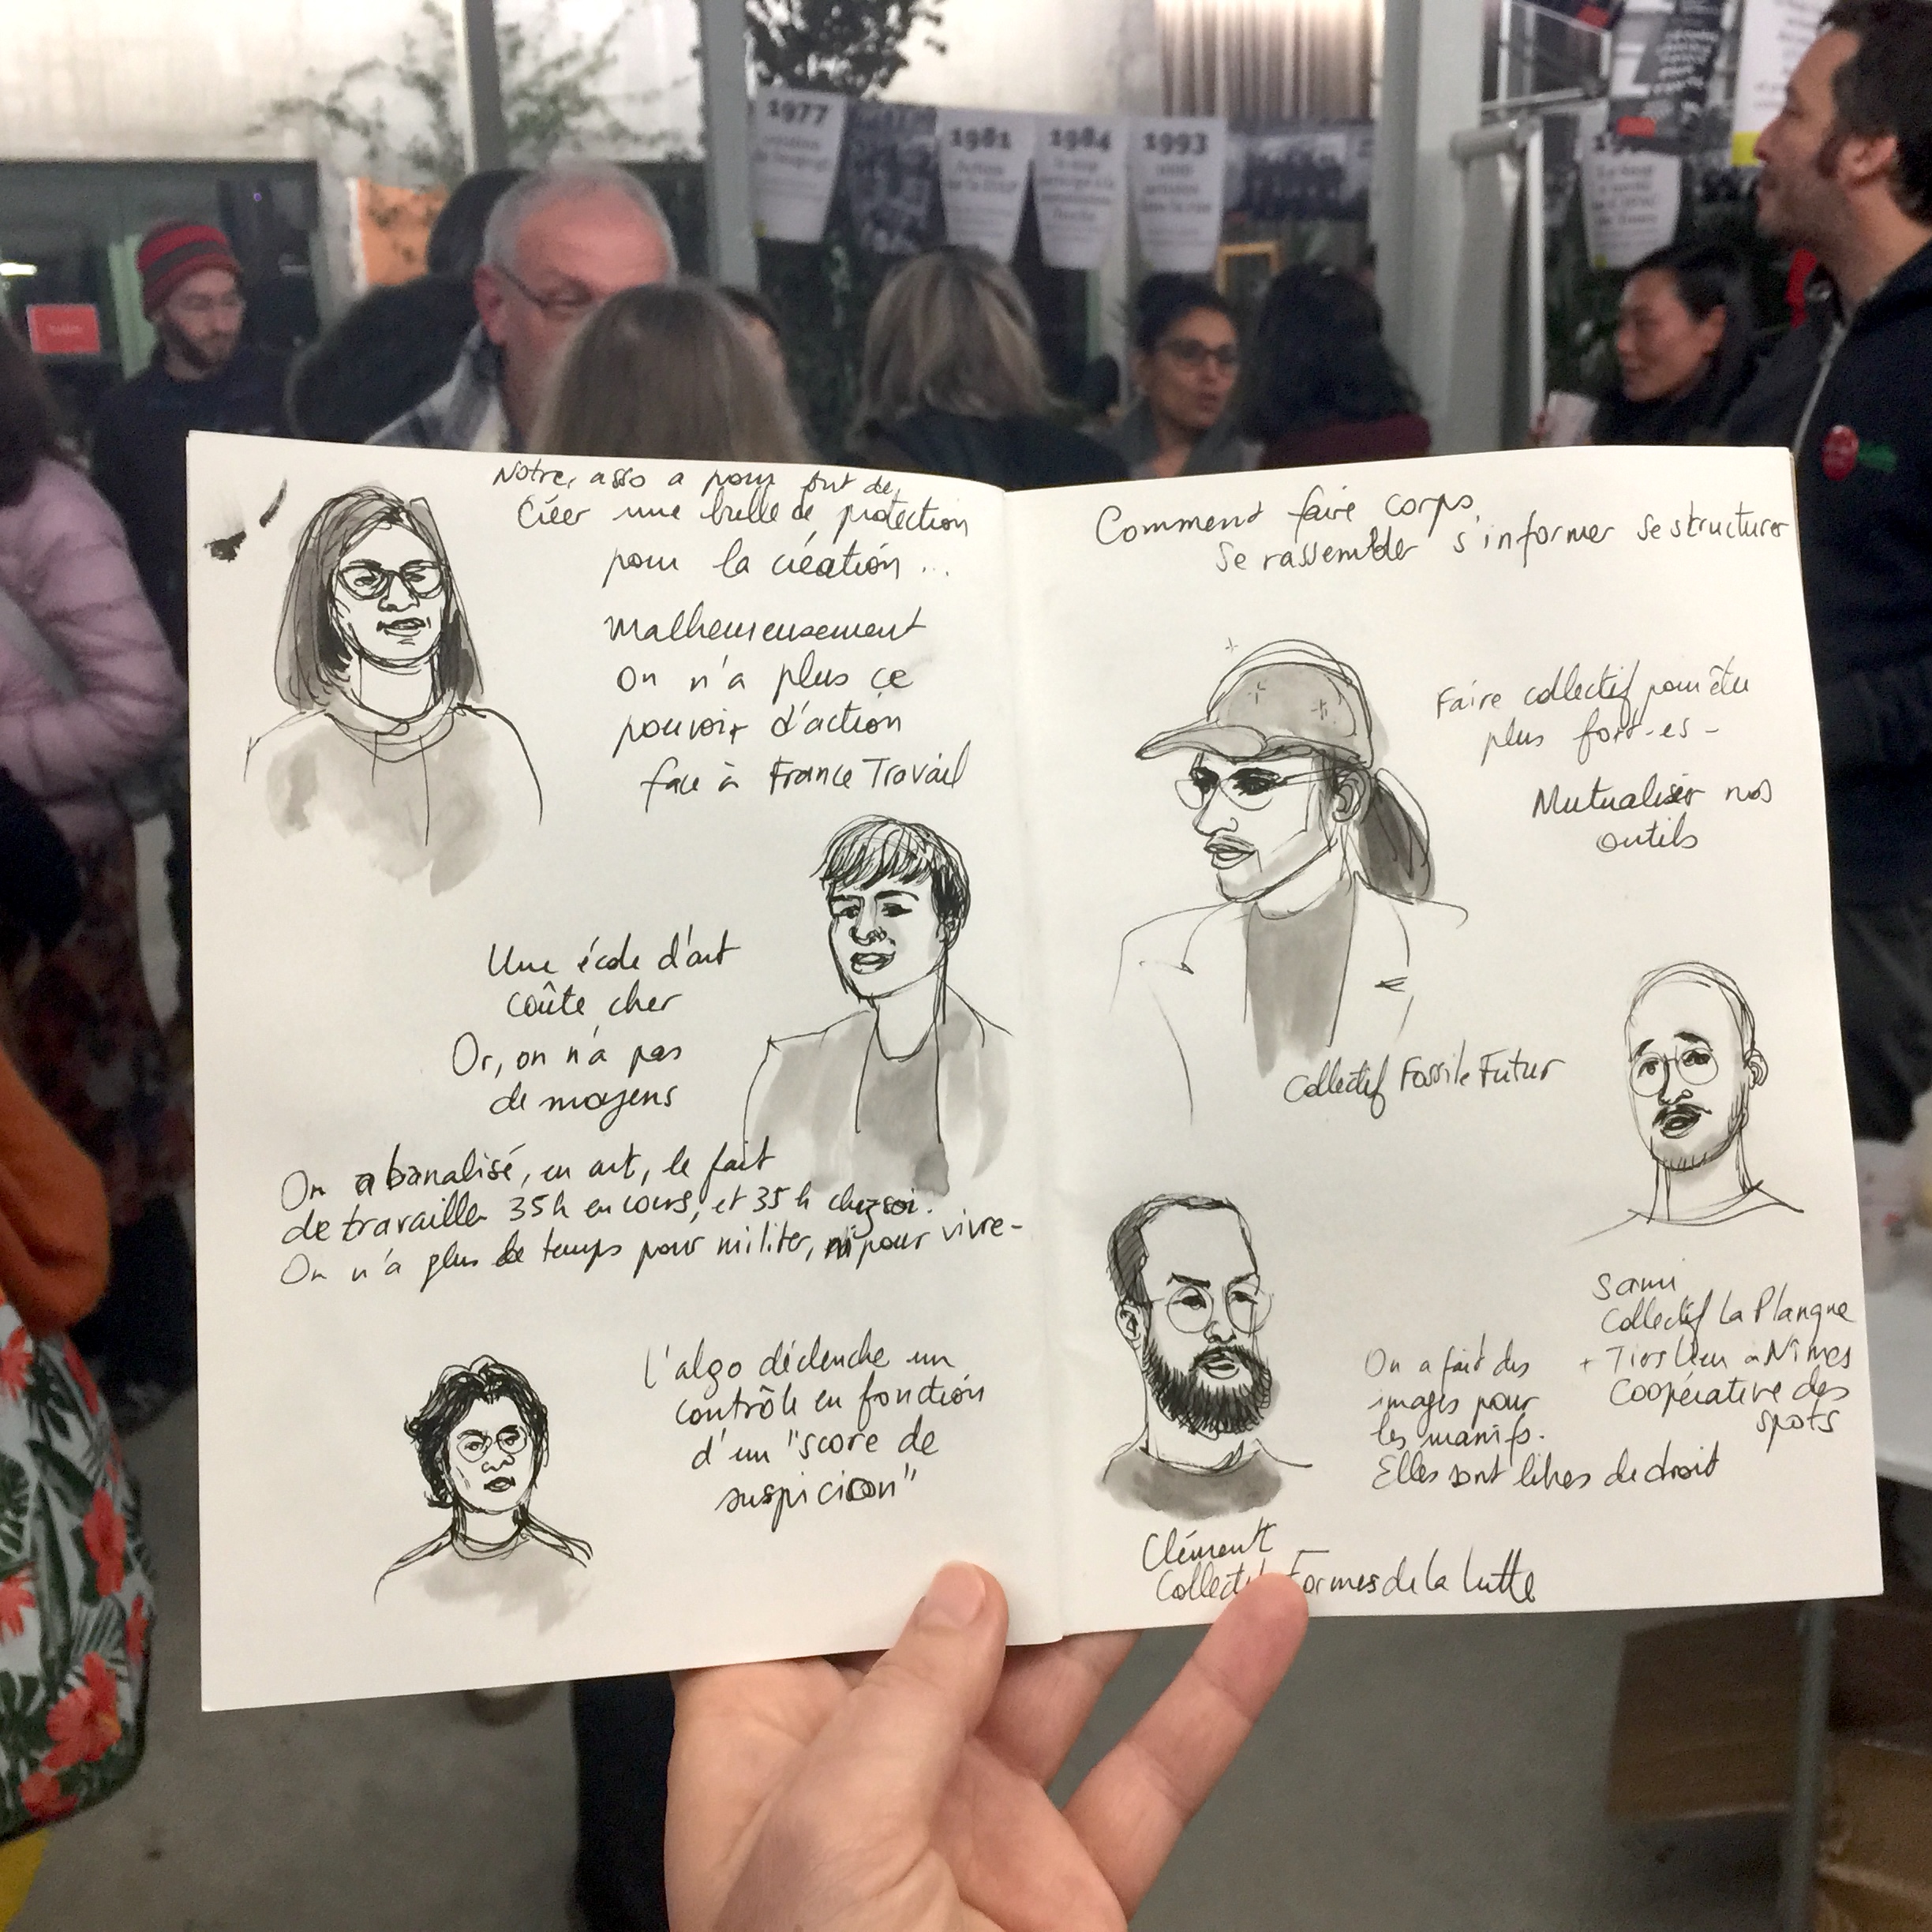 1977
1981
1984
1993
Notre asso a pour but de
Créer une bulle de protection
pour la création ...
Malheureusement
On n'a plus ce
pouvoir d'action
face à France Travail
Une école d'art
coûte cher
Or, on n'a pas
de moyens
On a banalisé, en art, le fait
de travailler 35h en cours, et 35h chez soi.
On n'a plus le temps pour militer, ni pour vivre-
L'algo déclenche un
contrôle en fonction
d'un "score de
suspicion"
Comment faire corps
Se rassembler s'informer se structurer
Faire collectif pour être
plus fort-es-
Mutualiser nos
outils
Collectif Fossile Futur
Sami
Collectif La Planque
+ Tiers Lieu à Nîmes
Coopérative des
spots
On a fait des
images pour
les manifs.
Elles sont libres de droit
Clément
Collectif Formes de la lutte